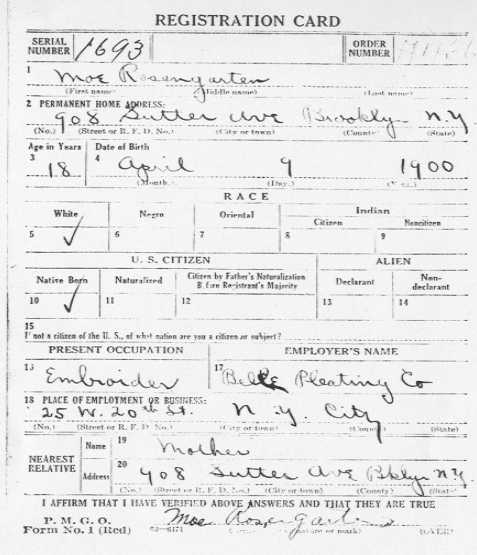 REGISTRATION CARD
SERIAL NUMBER 1693 ORDER NUMBER
1 Moe Rosengarten
(First name) (Middle name) (Last name)
2 PERMANENT HOME ADDRESS:
908 Sutter Ave Brooklyn N.Y
(No.) (Street or R. F. D. No.) (City or town) (County) (State)
Age in Years Date of Birth
3 18 4 April 9 1900
(Month.) (Day.) (Year.)
RACE
White Negro Oriental Indian
Citizen Noncitizen
5 ✓ 6 7 8 9
U. S. CITIZEN ALIEN
Native Born Naturalized Citizen by Father's Naturalization Before Registrant's Majority Declarant Non-declarant
10 ✓ 11 12 13 14
15
If not a citizen of the U. S., of what nation are you a citizen or subject?
PRESENT OCCUPATION EMPLOYER'S NAME
Embroider 17 Belle Pleating Co
18 PLACE OF EMPLOYMENT OR BUSINESS:
25 W. 20th St. N.Y. City
(No.) (Street or R. F. D. No.) (City or town) (County) (State)
NEAREST RELATIVE Name 19 Mother
Address 20 908 Sutter Ave Bklyn N.Y
(No.) (Street or R. F. D. No.) (City or town) (County) (State)
I AFFIRM THAT I HAVE VERIFIED ABOVE ANSWERS AND THAT THEY ARE TRUE
P. M. G. O.
Form No. 1 (Red) Moe Rosengarten
(OVER)